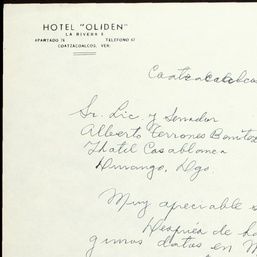 HOTEL "OLIDEN"
LA RIVERA 3
APARTADO 74 TELEFONO 67
COATZACOALCOS, VER.
Coatzacoalcos
Sr. Lic. y Senador
Alberto Terrones Benitez
Hotel Casablanca
Durango, Dgo.
Muy apreciable s
Después de ha
gunos datos en M